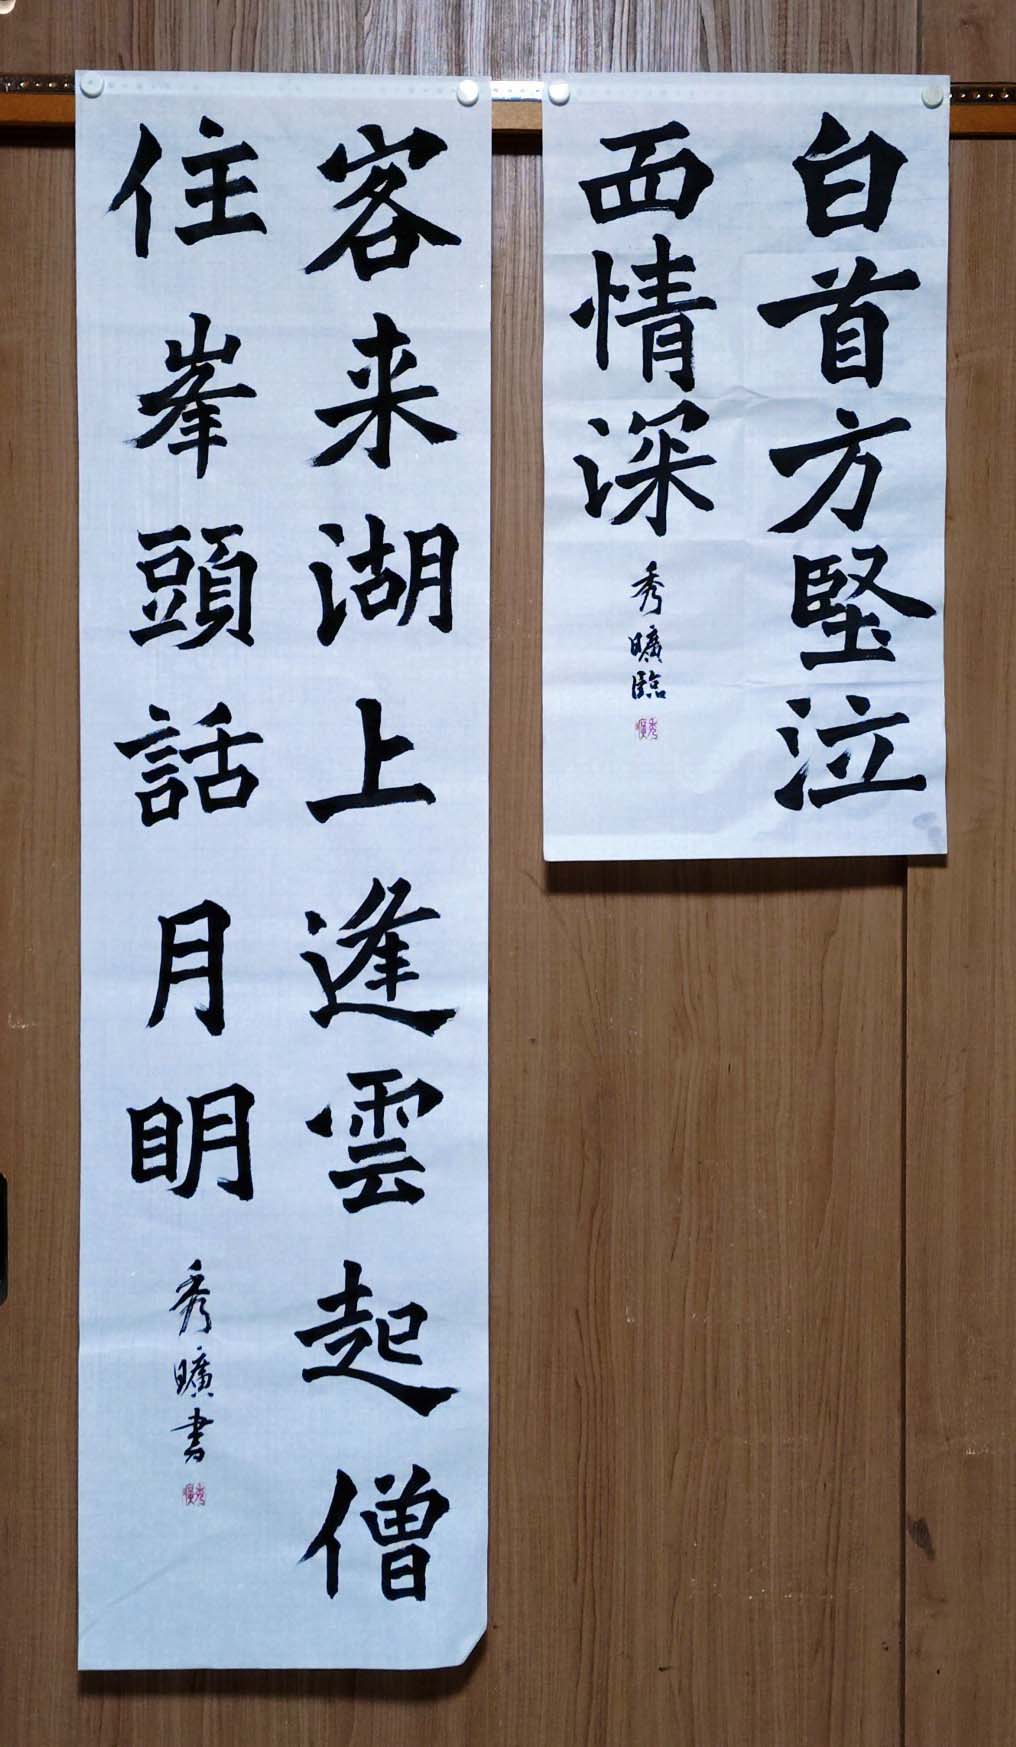 白首方堅泣
面情深
秀曠臨
客来湖上逢雲起僧
住峯頭話月明
秀曠書